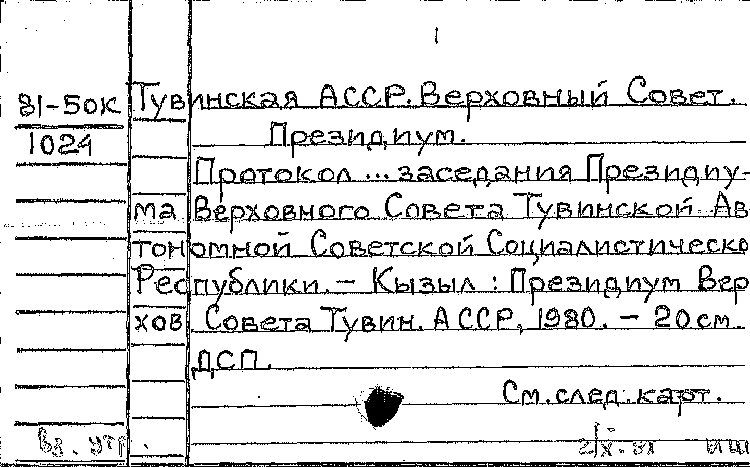 1
81-50к Тувинская АССР. Верховный Совет.
1024 Президиум.
Протокол ... заседания Президиу-
ма Верховного Совета Тувинской Ав
тономной Советской Социалистическо
Республики. — Кызыл : Президиум Вер
хов. Совета Тувин. АССР, 1980. — 20 см.
ДСП.
См. след. карт.
Вз. утр.